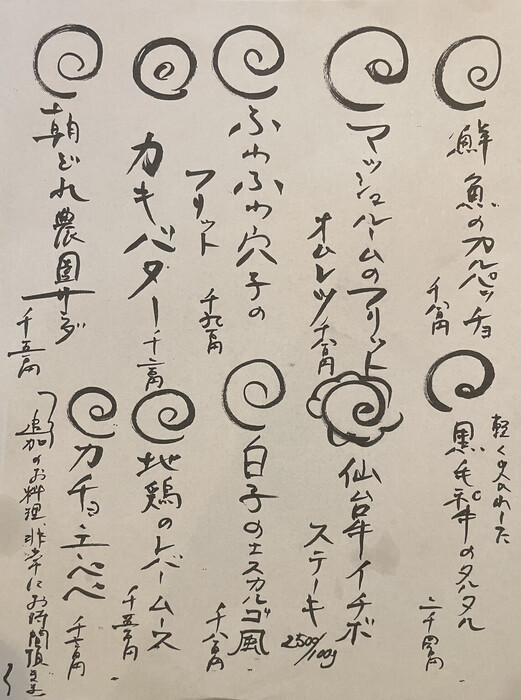 鮮魚のカルパッチョ
千八百円
マッシュルームのフリット
オムレツ 千八百円
ふわふわ穴子の
フリット
千九百円
カキバター 千二百円
朝どれ農園サラダ
千五百円
軽く火入れした
黒毛和牛のタルタル
二千四百円
仙台牛イチボ
ステーキ
2500/100g
白子のエスカルゴ風
千八百円
地鶏のレバームース
千五百円
カチョエペペ
千六百円
追加のお料理、非常にお時間頂きます